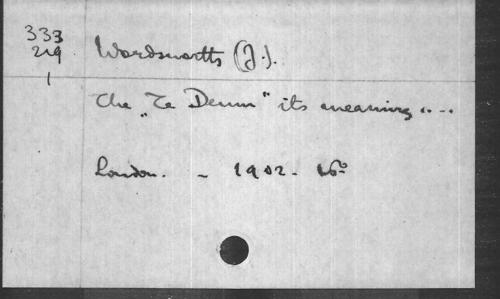 333
219
1
Wordsworth (J.).
The „Te Deum" its meaning....
London. - 1902 - 16º